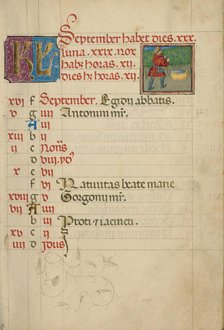 KL September habet dies .xxx.
luna .xxix. nox
habet horas .xij.
dies hx horas .xij.
xvi f September. Egidij abbatis.
v g iiij Antonini mr̄.
A iij
xiij b ij
ij c Noñs
d viij
x e vij
f vj Natiuitas beate marie
xviij g v Gorgonij mr̄.
vij A iiij
b iij Proti et iacincti.
xv c ij
iiij d Idus